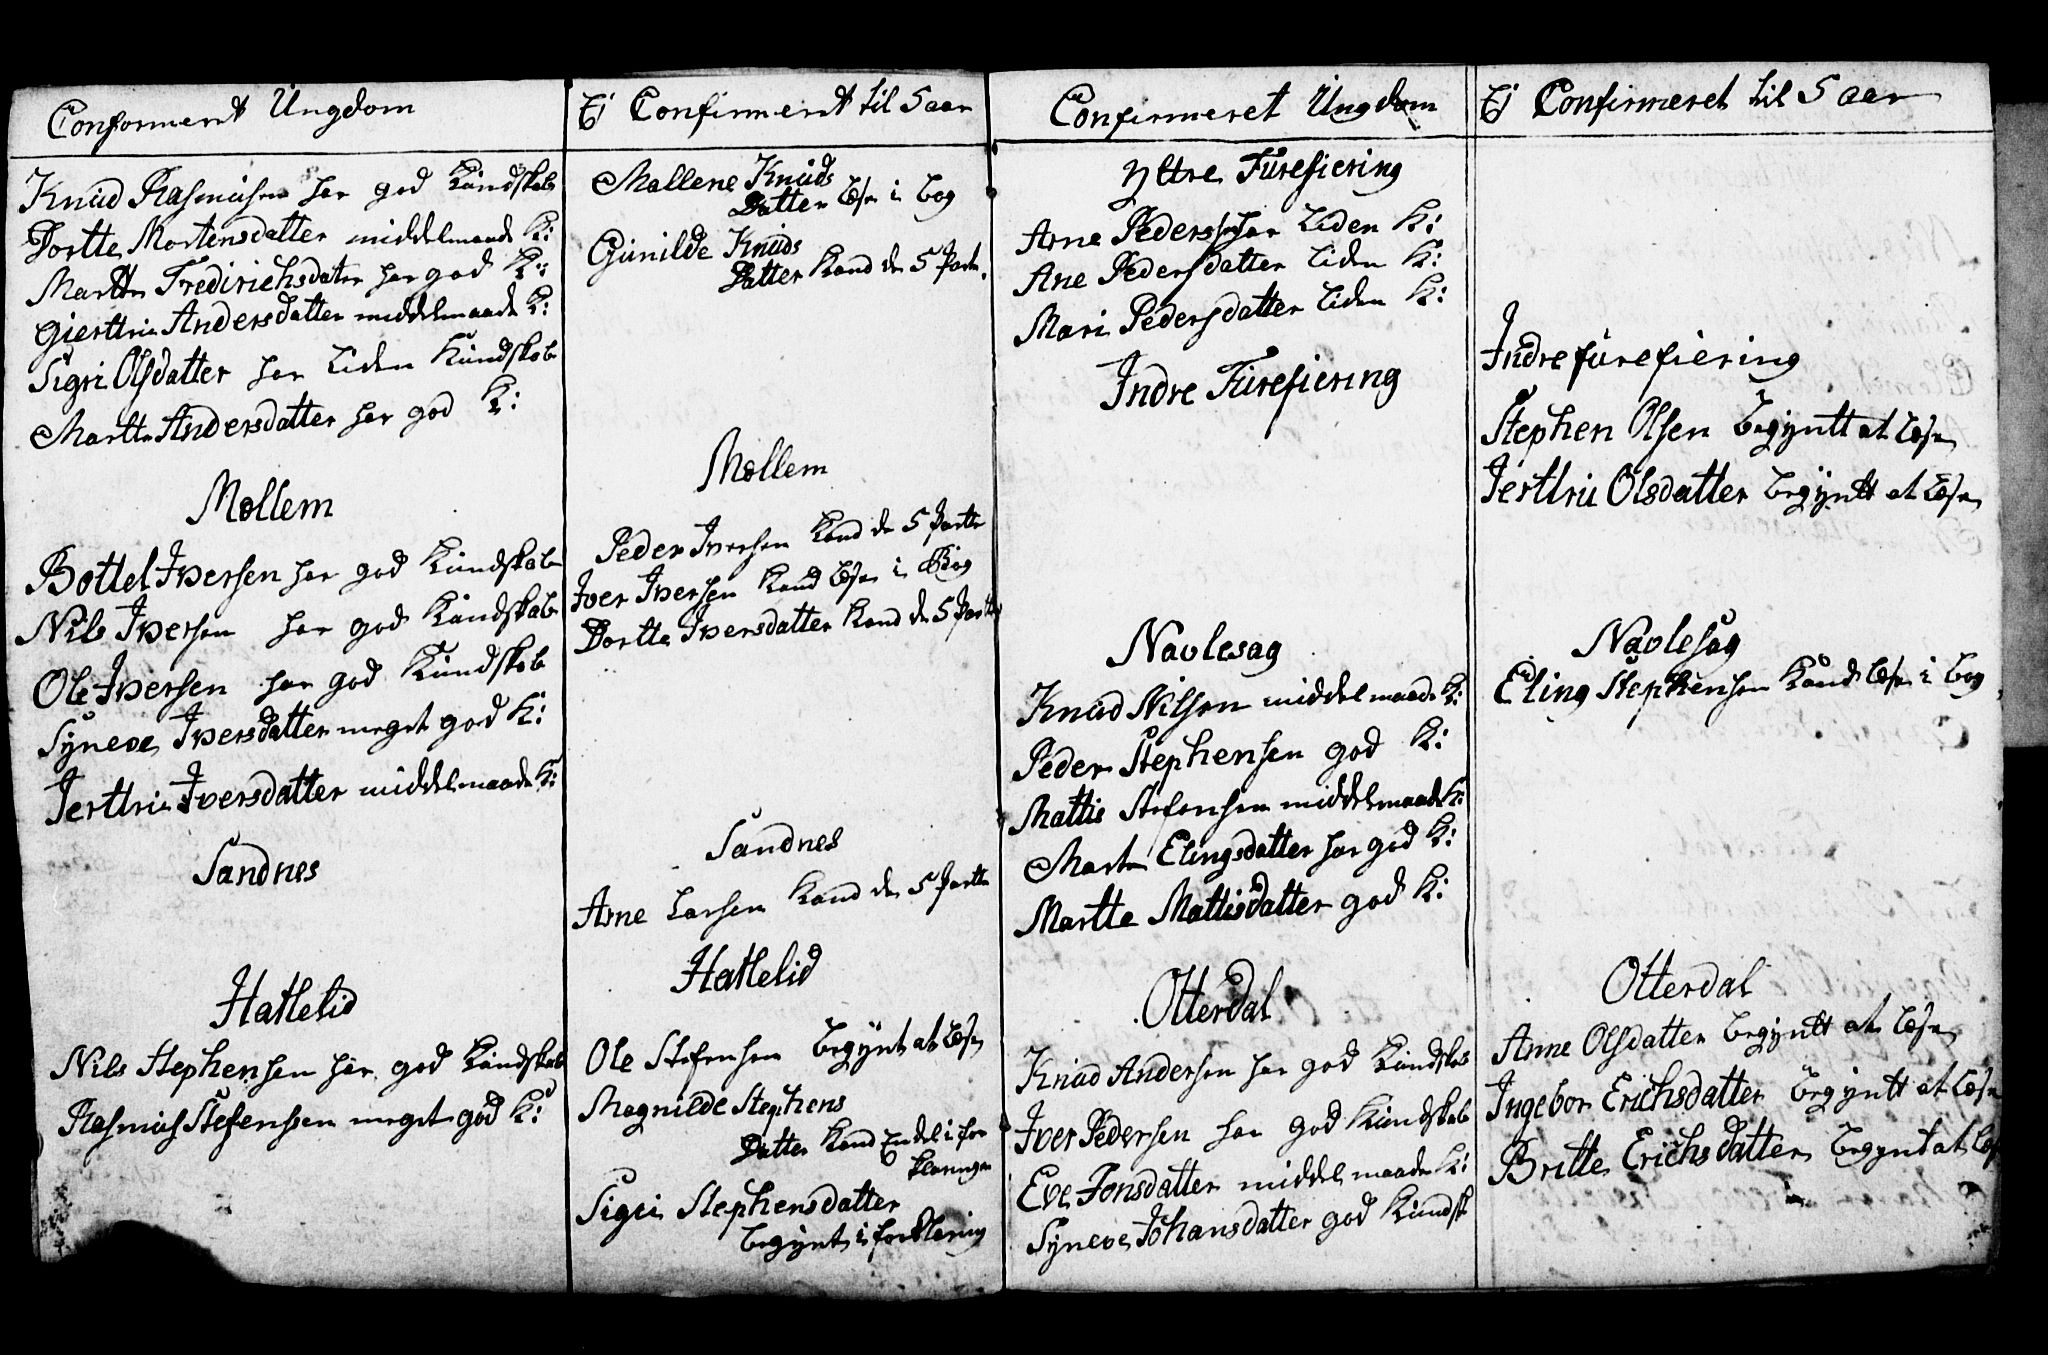 Conformeret Ungdom
Knud Rasmusen har god Kundskab
Dortte Mortensdatter middelmaade K:
Martte Fredirichsdater har god K:
Gierttrue Andersdatter middelmaade K:
Sigri Olsdatter har liden Kundskab
Martte Andersdatter har god K:
Mollem
Bottel Iversen har god Kundskab
Nils Iversen har god Kundskab
Ole Iversen har god Kundskab
Syneve Iversdatter meget god K:
Jerttrue Iversdatter middelmaade K:
Sandnes
Hattelid
Nils Stephensen har god Kundskab
Rasmus Stefensen meget god K:
Ej Confirmeret til 5 aar
Mallene Knuds
Datter læse i bog
Gunilde Knuds
Datter kand de 5 Parte
Mollem
Peder Iversen kand de 5 Partte
Iver Iversen kand læse i Bog
Dortte Iversdatter kand de 5 Partte
Sandnes
Arne Larsen kand de 5 Partte
Hattelid
Ole Stefensen begynt at læse
Magnilde Stephens
Datter kand En del i for
klaringen
Sigri Stephensdatter
begynt i forklaring
Confirmeret Ungdom
Yttre Furefiering
Arne Pedersen har liden K:
Ane Pedersdatter liden K:
Mari Pedersdatter liden K:
Indre Furefiering
Navlesag
Knud Nilsen middelmaade K:
Peder Stephensen god K:
Mattis Stefensen middelmaade K:
Marte Elingsdatter har god K:
Martte Mattisdatter god K:
Otterdal
Knud Andersen har god Kundskab
Iver Pedersen har god Kundskab
Eve Jonsdatter middelmaade K:
Syneve Johansdatter god Kundsk
Ej Confirmeret til 5 aar
Indre furefiering
Stephen Olsen begyntt at læse
Jerttrue Olsdatter begyntt at læse
Navlesag
Eling Stephensen kand læse i bog
Otterdal
Anne Olsdatter begyntt at læse
Ingebor Erichsdatter begyntt at læse
Britte Erichsdatter begynt at læs